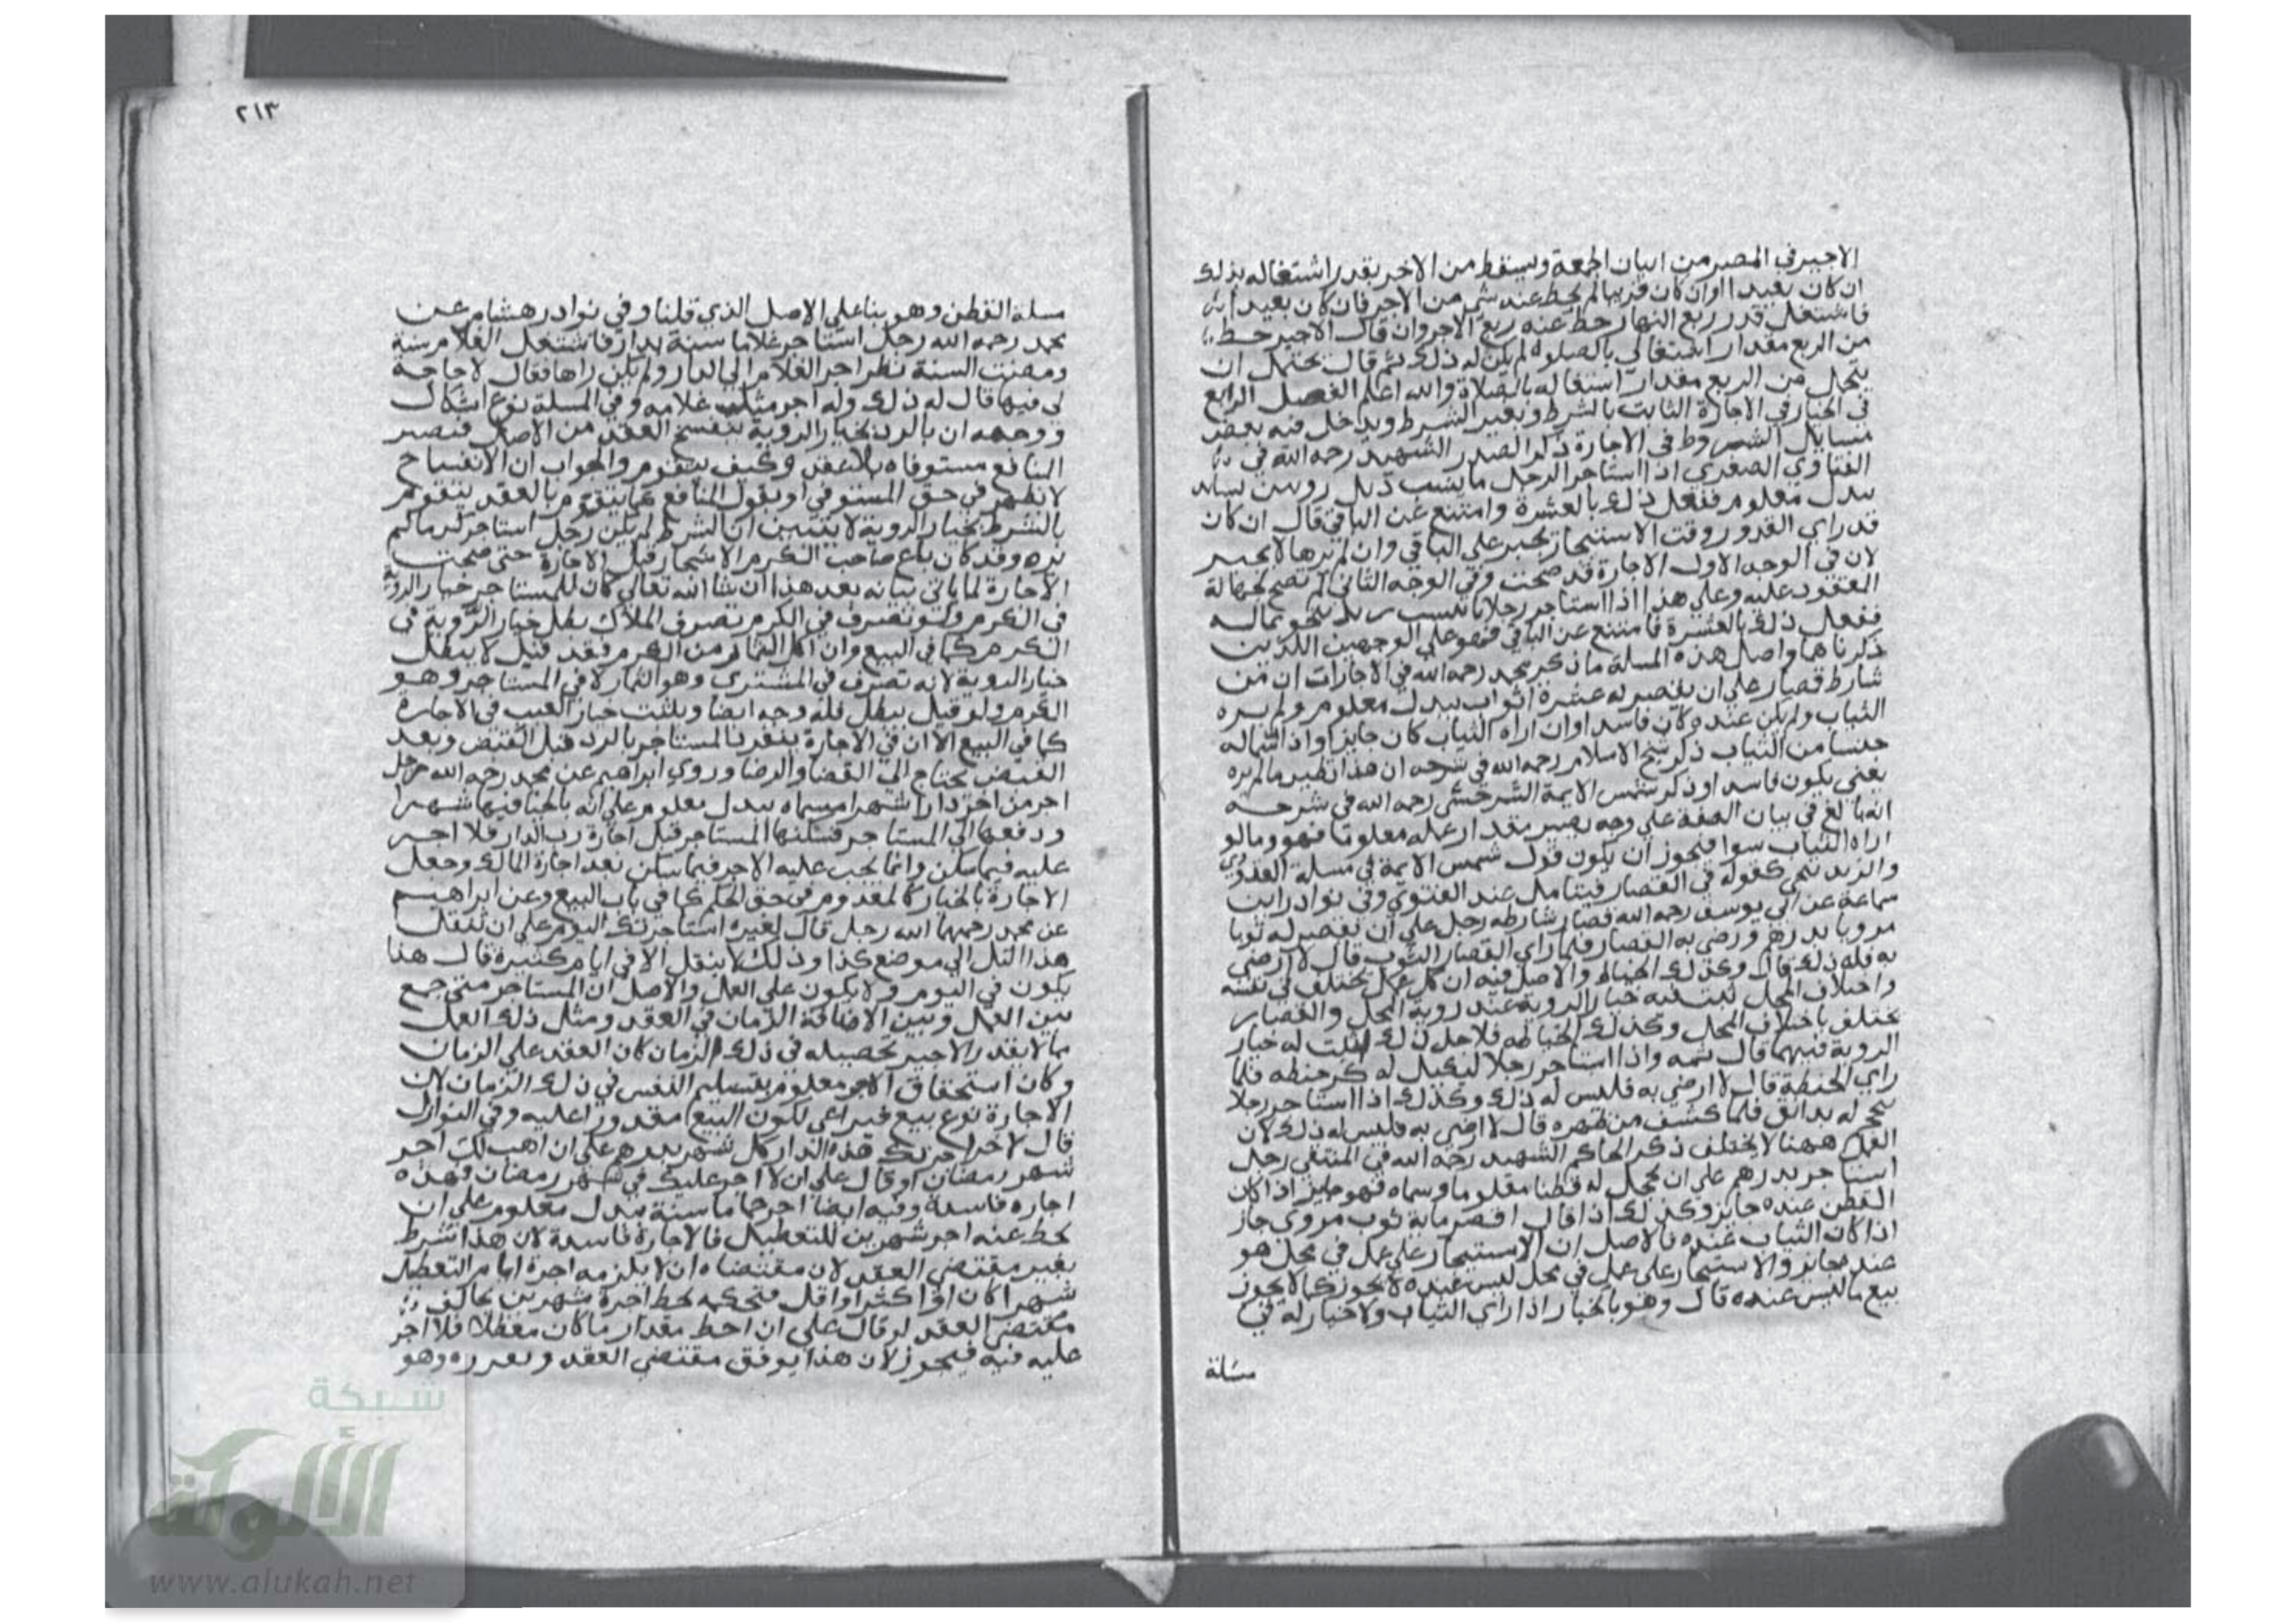 الاجير في المصر من اتيان الجمعة ويسقط من الاجر بقدر اشتغاله بذلك
ان كان بعيدا وان كان قريبا لم يحط عنه شي من الاجر فان كان بعيدا
فاشتغل قدر ربع النهار حط عنه ربع الاجر وان قال الاجير حط
من الربع مقدار اشتغالي بالصلوة لم يكن له ذلك ثم قال يحتمل ان
يتحمل من الربع مقدار اشتغاله بالصلاة والله اعلم الفصل الرابع
في الخيار في الاجارة الثابت بالشرط وبغير الشرط ويدخل فيه بعض
مسايل الشروط في الاجارة ذكر الصدر الشهيد رحمه الله في
الفتاوي الصغري اذا استاجر الرجل
ببدل معلوم ففعل ذلك بالعشرة وامتنع عن الباقي قال ان كان
قد راي القدور وقت الاستيجار يجبر علي الباقي وان لم يرها لا يجبر
لان في الوجه الاول الاجارة قد صحت وفي الوجه الثاني لم تصح لجهالة
المعقود عليه وعلي هذا اذا استاجر رجلا
ففعل ذلك بالعشرة فامتنع عن الباقي فهو علي الوجهين اللذين
ذكرناهما واصل هذه المسلة ما ذكر محمد رحمه الله في الاجارات ان من
شارط قصار علي ان يقصر له عشرة اثواب ببدل معلوم ولم يره
الثياب ولم يكن عنده كان فاسدا وان اراه الثياب كان جايزا واذا سمي له
جنسا من الثياب ذكر شيخ الاسلام رحمه الله في شرحه ان هذا نظير ما لم يره
يعني يكون فاسدا وذكر شمس الايمة السرخسي رحمه الله في شرحه
انه بالغ في بيان الصفة علي وجه يصير مقدار عمله معلوما فهو وما لو
اراه الثياب سوا فيجوز ان يكون قول شمس الايمة في مسلة القدور
كقوله في القصار فيتامل عند الفتوي وفي نوادر ابن
سماعة عن ابي يوسف رحمه الله قصار شارطه رجل علي ان يقصر له ثوبا
مرويا بدرهم ورضي به القصار فلما راي القصار الثوب قال لا ارضي
به فله ذلك قال وكذلك الخياط والاصل فيه ان كل عمل يختلف في نفسه
واختلاف المحل يثبت فيه خيار الروية عند روية المحل والقصار
يختلف باختلاف المحل وكذلك الخياطة فلاجل ذلك اثبت له خيار
الروية فيهما قال ثمه واذا استاجر رجلا ليكيل له كر حنطة فلما
راي الحنطة قال لا ارضي به فليس له ذلك وكذلك اذا استاجر رجلا
يحجم له بدانق فلما كشف عن ظهره قال لا ارضي به فليس له ذلك لان
العمل ههنا لا يختلف ذكر الحاكم الشهيد رحمه الله في المنتقي رجل
استاجر بدرهم علي ان يحلج له قطنا معلوما وسماه فهو جايز اذا كان
القطن عنده جايز وكذلك اذا قال اقصر ماية ثوب مروي جاز
اذا كان الثياب عنده فالاصل ان الاستيجار علي عمل في محل هو
عنده جايز والاستيجار علي عمل في محل ليس عنده لا يجوز كما لا يجوز
بيع ما ليس عنده قال وهو بالخيار اذا راي الثياب ولا خيار له في
مسلة
٢١٣
مسلة القطن وهو بنا علي الاصل الذي قلنا وفي نوادر هشام عن
محمد رحمه الله رجل استاجر غلاما سنة بدار فاشتغل الغلام سنة
ومضت السنة نظر اجر الغلام الي الدار ولم يكن راها فقال لا حاجة
لي فيها قال له ذلك وله اجر مثل غلامه وفي المسلة نوع اشكال
ووجهه ان بالرد بخيار الروية ينفسخ العقد من الاصل فتصير
المنافع مستوفاة بلا عقد وكيف يتقوم والجواب ان الانفساخ
لا يظهر في حق المستوفي او يقول المنافع كما يتقوم بالعقد يتقوم
بالشرط بخيار الروية لا يتبين ان الشرط لم يكن رجل استاجر كرما لم
يره وقد كان باع صاحب الكرم الاشجار قبل الاجارة حتي صحت
الاجارة لما ياتي بيانه بعد هذا ان شا الله تعالي كان للمستاجر خيار الروية
في الكرم ولو تصرف في الكرم تصرف الملاك بطل خيار الروية في
الكرم كما في البيع وان اكل الثمار من الكرم فقد قيل لا يبطل
خيار الروية لانه تصرف في المشتري وهو الثمار لا في المستاجر وهو
الكرم ولو قيل يبطل فله وجه ايضا ويثبت خيار العيب في الاجارة
كما في البيع الا ان في الاجارة ينفرد المستاجر بالرد قبل القبض وبعد
القبض يحتاج الي القضا والرضا وروي ابراهيم عن محمد رحمه الله رجل
اجر من اخر دارا شهرا مسماه ببدل معلوم علي انه بالخيار فيها شهرا
ودفعها الي المستاجر فسكنها المستاجر قبل اجازة رب الدار فلا اجر
عليه فيما سكن وانما يجب عليه الاجر فيما سكن بعد اجازة المالك وجعل
الاجارة بالخيار كالمعدوم في حق الحكم كما في باب البيع وعن ابراهيم
عن محمد رحمهما الله رجل قال لغيره استاجرتك اليوم علي ان تنقل
هذا التل الي موضع كذا وذلك لا ينقل الا في ايام كثيرة قال هذا
يكون في اليوم ولا يكون علي العمل والاصل ان المستاجر متي جمع
بين العمل وبين الاضافة الزمان في العقد ومثل ذلك العمل
مما لا يقدر الاجير تحصيله في ذلك الزمان كان العقد علي الزمان
وكان استحقاق الاجر معلوم بتسليم النفس في ذلك الزمان لان
الاجارة نوع بيع فيراعي لكون البيع مقدورا عليه وفي النوازل
قال لاخر اجرتك هذه الدار كل شهر بدرهم علي ان اهب لك اجر
شهر رمضان او قال علي ان لا اجر عليك في شهر رمضان فهذه
اجارة فاسدة وفيه ايضا اجر حماما سنة ببدل معلوم علي ان
يحط عنه اجر شهرين للتعطيل فالاجارة فاسدة لان هذا شرط
بغير مقتضي العقد لان مقتضاه ان لا يلزمه اجرة ايام التعطيل
شهرا كان او اكثر او اقل فتحكمه بحط اجرة شهرين يخالف
مقتضي العقد لو قال علي ان احط مقدار ما كان معطلا فلا اجر
عليه فيه فيجوز لان هذا يوفق مقتضي العقد ويقرره وهو
شبكة
الألوكة
www.alukah.net